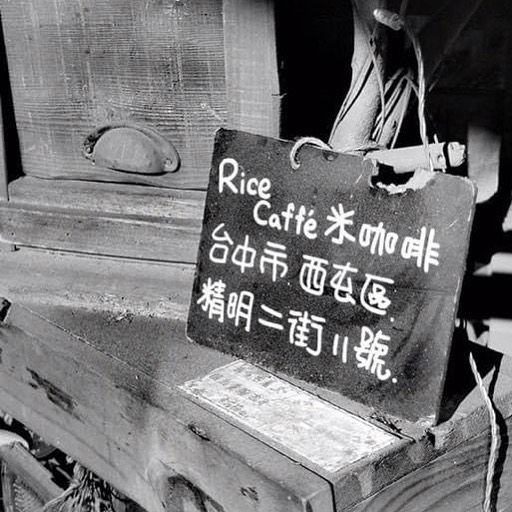 Rice
Caffé 米咖啡
台中市.西屯區.
精明二街11號.